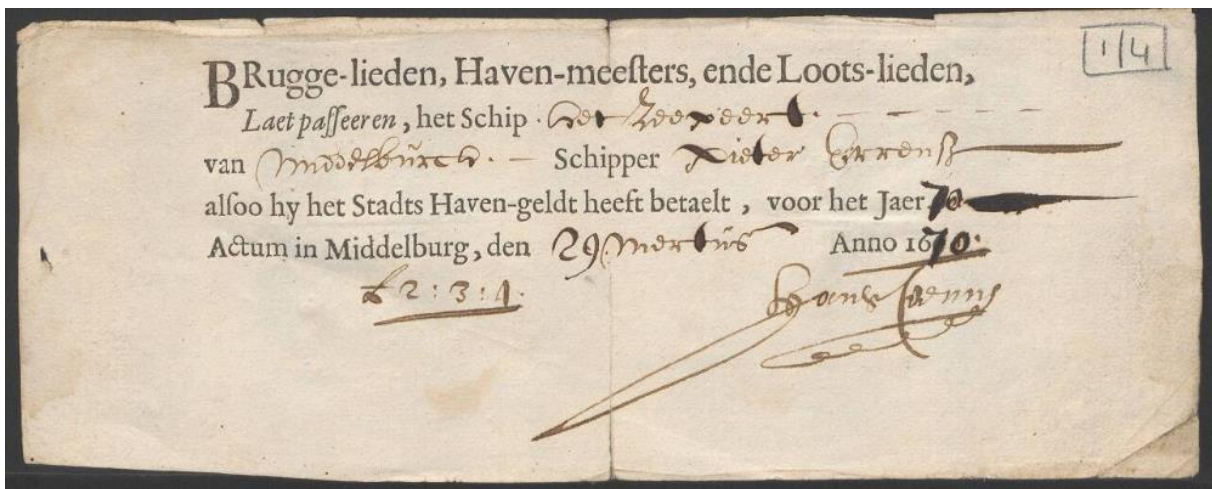 1/4
BRugge-lieden, Haven-meeſters, ende Loots-lieden,
Laet paſſeeren, het Schip. het Zeepeert.
van Middelburch. Schipper Pieter
alſoo hy het Stadts Haven-geldt heeft betaelt, voor het Jaer 70
Actum in Middelburg, den 29 Mertús Anno 1670.
£ 2:3:4.